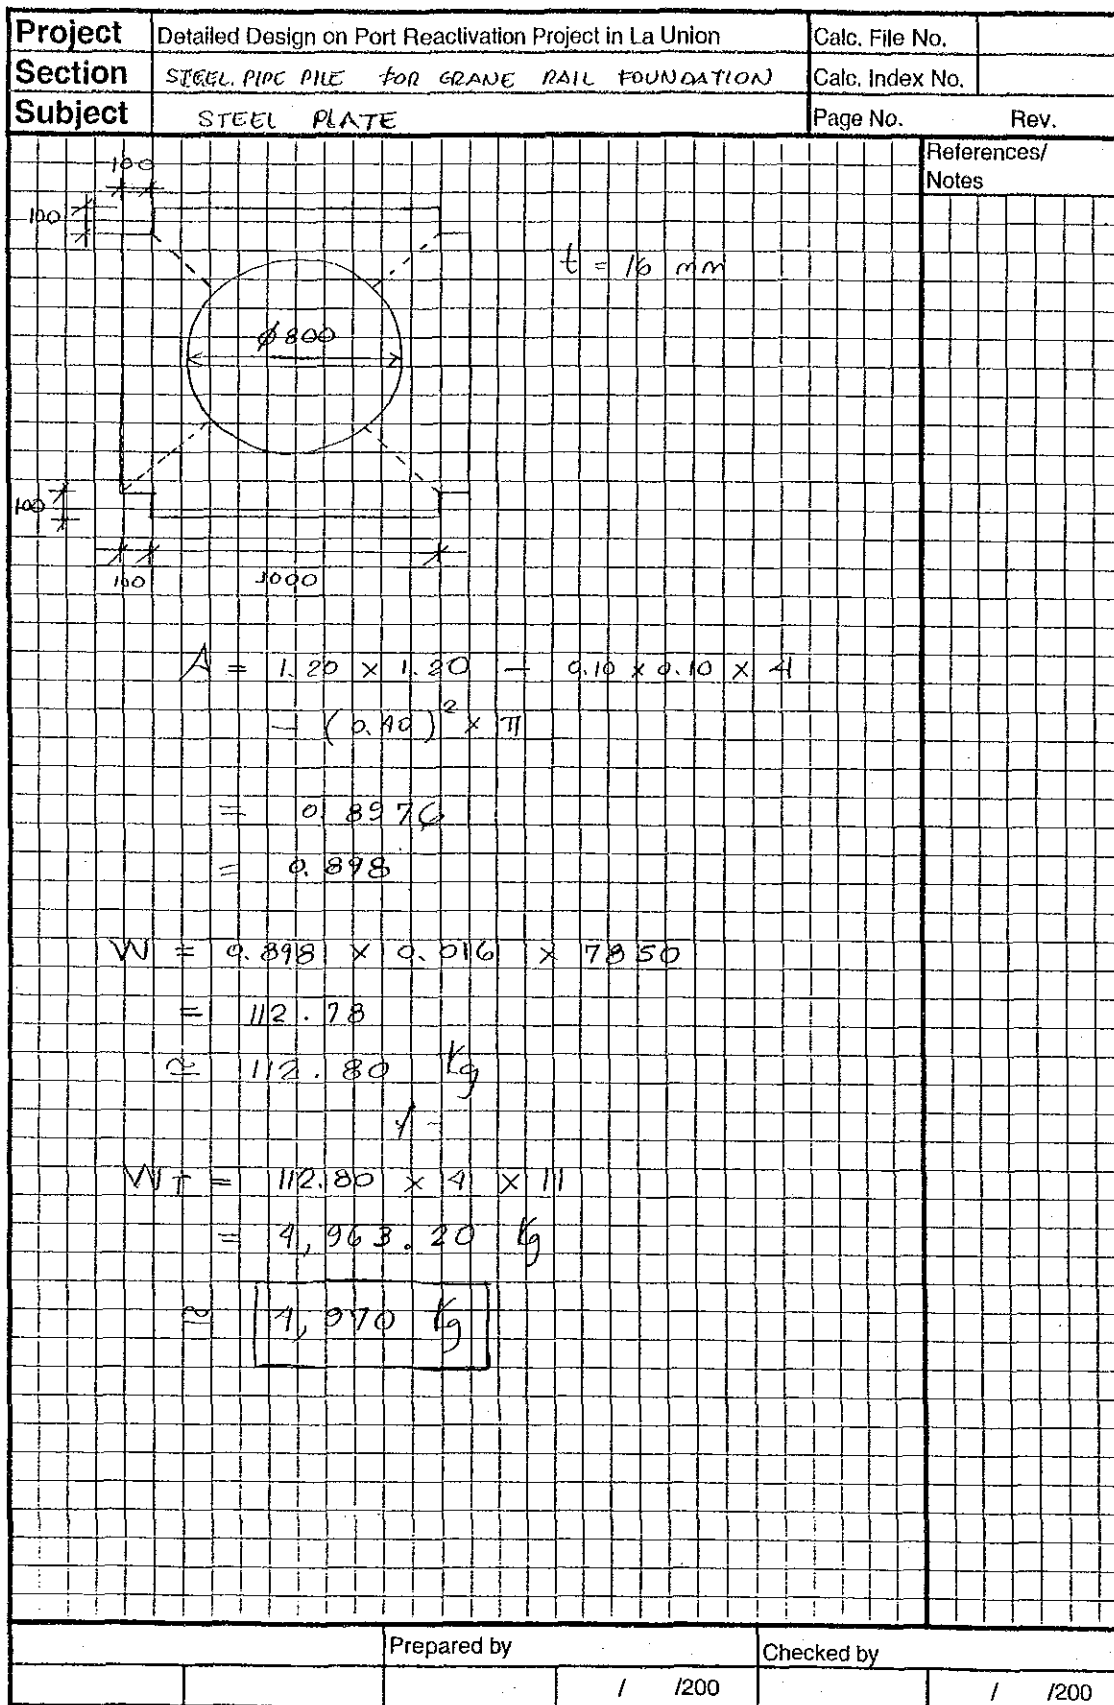 Project Detailed Design on Port Reactivation Project in La Union Calc. File No.
Section STEEL PIPE PILE FOR CRANE RAIL FOUNDATION Calc. Index No.
Subject STEEL PLATE Page No. Rev.
References/
Notes
100
100
t = 16 mm
ø800
100
100 1000
A = 1.20 × 1.20 - 0.10 × 0.10 × 4
- (0.40)² × π
= 0.8976
= 0.898
W = 0.898 × 0.016 × 7850
= 112.78
≅ 112.80 Kg
WT = 112.80 × 4 × 11
= 4,963.20 Kg
≅ 4,970 Kg
Prepared by Checked by
/ /200 / /200